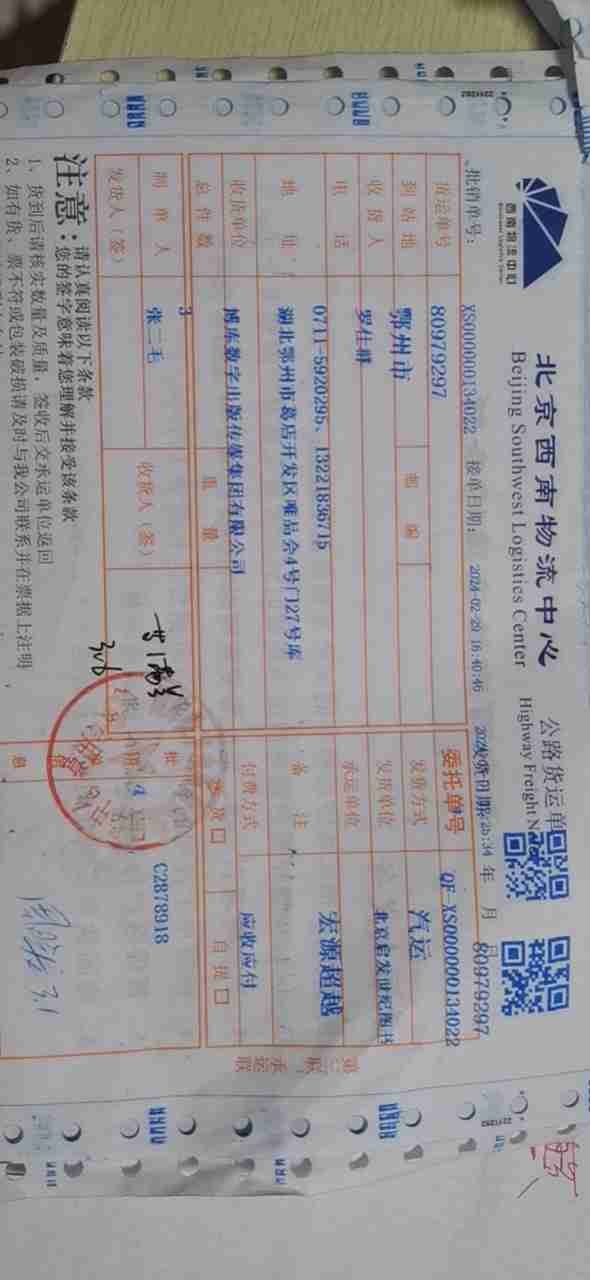 西南物流中心
北京西南物流中心
Beijing Southwest Logistics Center
公路货运单
Highway Freight N
80979297
批销单号： XS000000134022 接单日期： 2024-02-29 16:40:46 发货日期： 年 月 日
货运单号 80979297 委托单号 QF-XS000000134022
到站地 鄂州市 邮编 发货方式 汽运
收货人 罗仕群 发货单位 北京启发世纪图书
电话 0711-5920295、13221836715 承运单位 宏源超越
地址 湖北鄂州市葛店开发区唯品会4号门27号库 备注
收货单位 博库数字出版传媒集团有限公司 付费方式 应收应付
总件数 3 重量 送货口 自提口
制单人 张二毛 收货人（签）
发货人（签）
C2878918
息
3.1
注意：
请认真阅读以下条款
您的签字意味着您理解并接受该条款
1、货到后请核实数量及质量，签收后交承运单位返回
2、如有货、票不符或包装破损请及时与我公司联系并在票据上注明
第三联 承运联